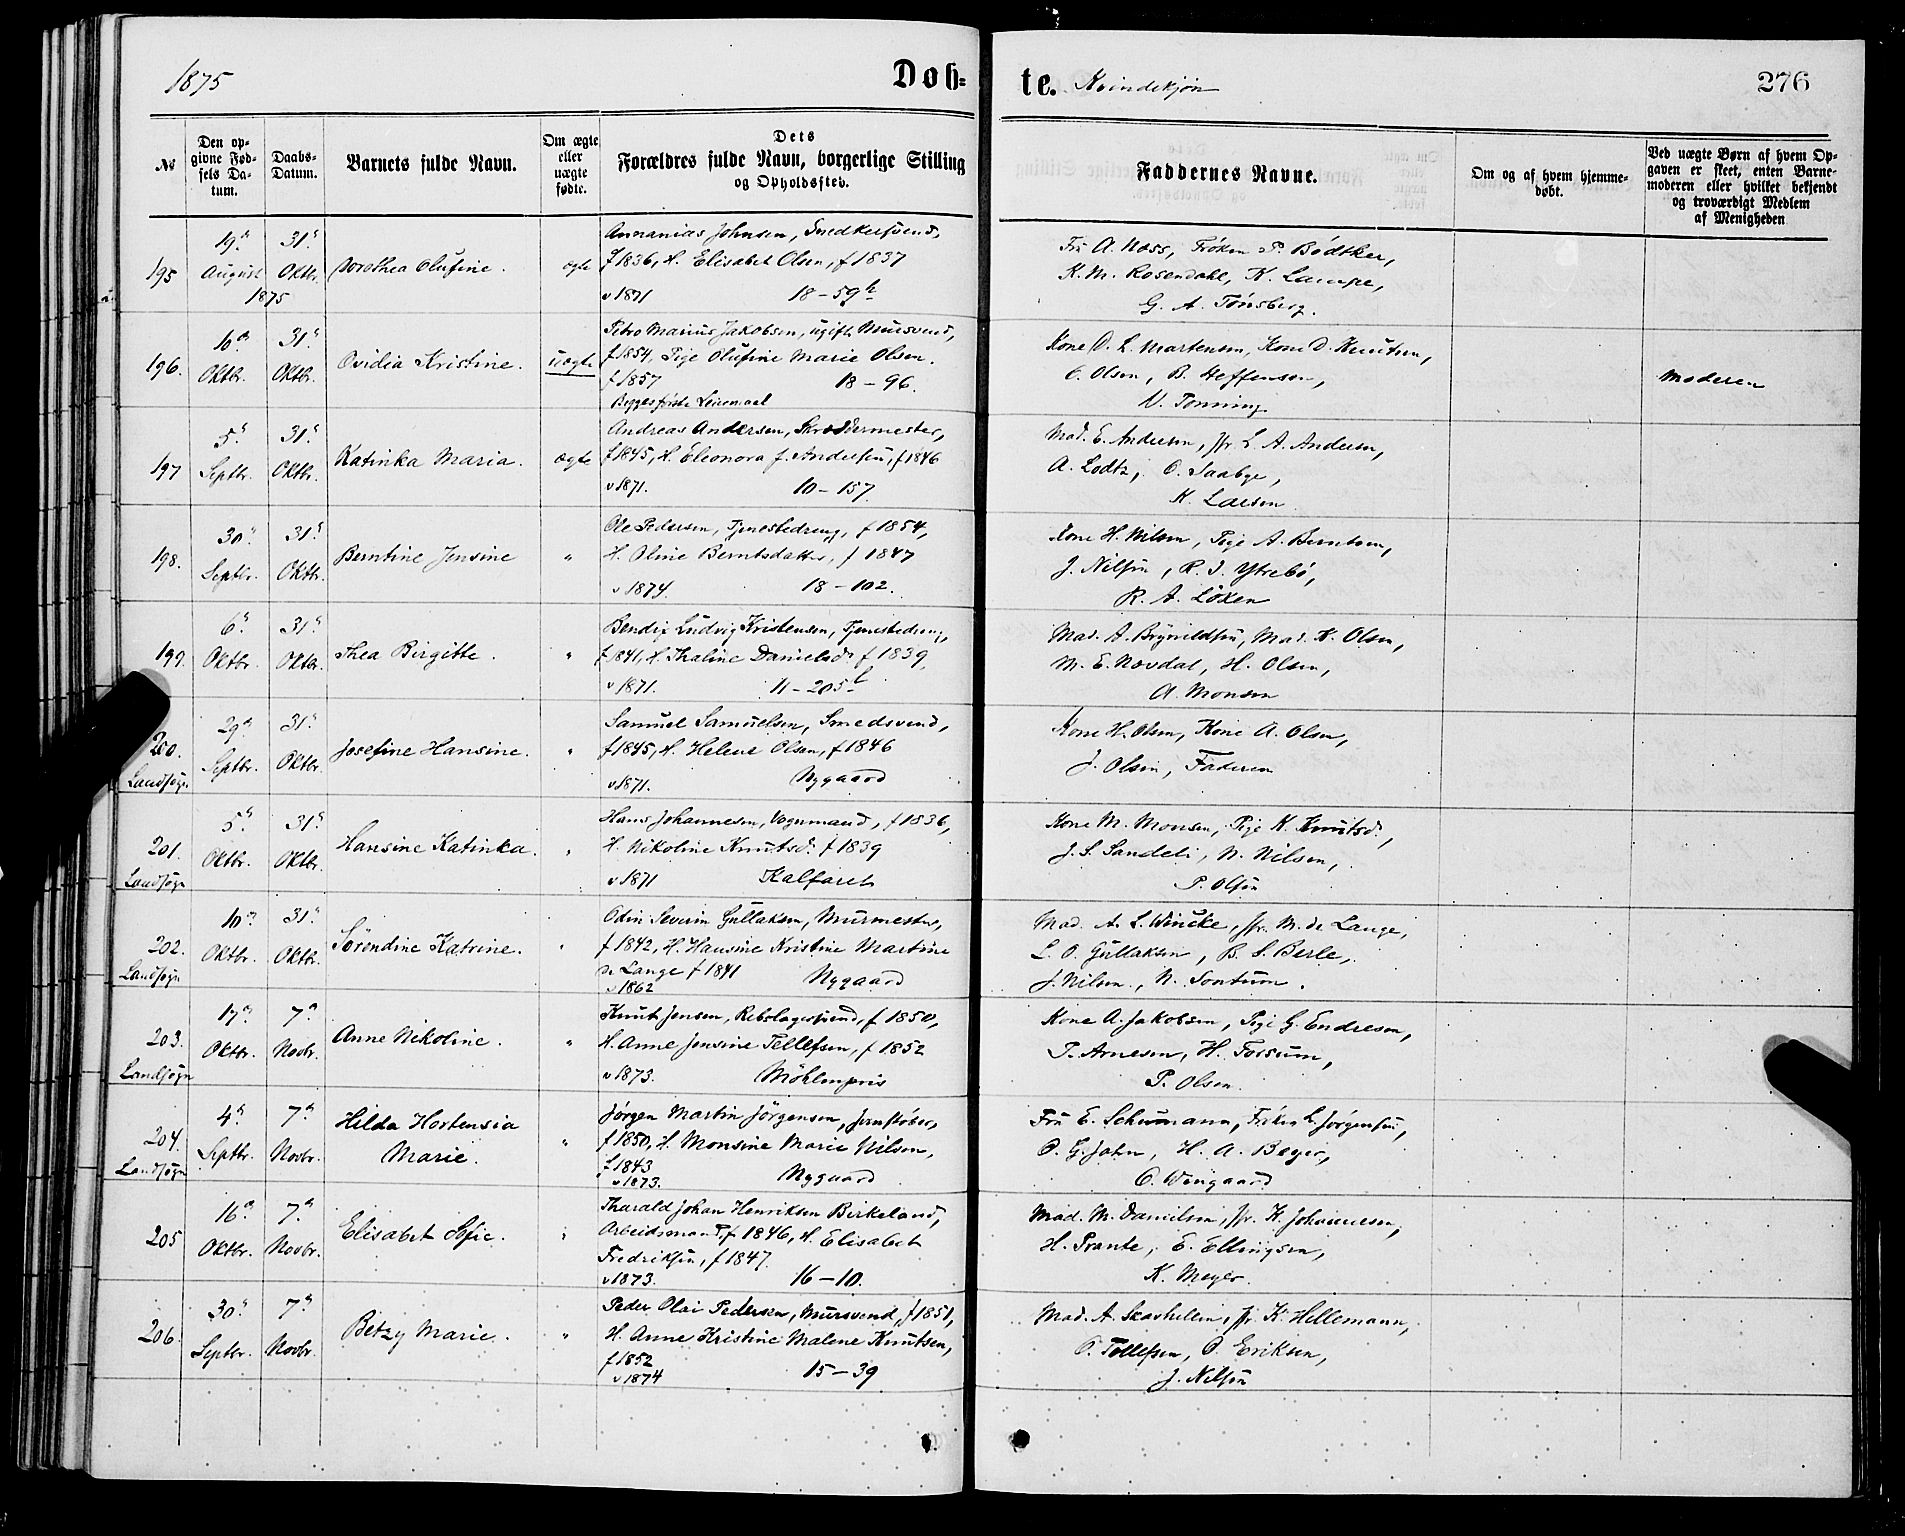 1875
Døb-
te. Kvindekjøn
276
No
Den op-
givne Fød-
sels Da-
tum.
Daabs-
Datum.
Barnets fulde Navn.
Om ægte
eller
uægte
fødte.
Dets
Forældres fulde Navn, borgerlige Stilling
og Opholdssted.
Faddernes Navne.
Om og af hvem hjemme-
døbt.
Ved uægte Børn af hvem Op-
gaven er skeet, enten Barne-
moderen eller hvilket bekjendt
og troværdigt Medlem
af Menigheden
195
19de August 1875
31te Oktbr.
Dorothea Olufine.
ægte
Annanias Johnsen, Snedkersvend,
f 1836, H. Elisabet Olsen, f 1837
v 1871 18-59b
Fru A. Næss, Frøken P. Bødtker,
K. M. Rosendahl, K. Lampe,
G. A. Tønsberg.
196.
10de Oktbr.
31te Oktbr.
Ovidia Kristine.
uægte
Petro Marius Jakobsen, ugift Mursvend,
f 1854, Pige Olufine Marie Olsen.
f 1857 18-96.
Begges første Leiermaal
Kone D. L. Martensen, Kone D. Knutsen,
C. Olsen, B. Steffensen,
V. Tonning.
Moderen
197
5te Septbr.
31te Oktbr.
Katinka Maria.
ægte
Andreas Andersen, Skræddermester,
f 1845, H. Eleonora f. Andersen, f 1846
v 1871. 10-157.
Mad. E. Andersen, Jfr. L. A. Andersen,
A. Lodtz, O. Saabye,
K. Larsen
198.
30te Septbr.
31te Oktbr.
Berntine Jensine
"
Ole Pedersen, Tjenestedreng, f 1854,
H. Oline Berntsdatter, f 1847
v 1874. 18-102.
Kone H. Nilsen, Pige A. Berntsen,
J. Nilsen, R. I. Ytrebø,
R. A. Løken
199.
6te Oktbr.
31te Oktbr.
Thea Birgitte.
"
Bendix Ludvig Kristensen, Tjenestedreng,
f 1841, H. Thaline Danielsdr f 1839
v 1871. 11-205b
Mad. A. Brynildsen, Mad. K. Olsen,
M. E. Nævdal, H. Olsen,
A. Monsen
200.
Landsogn
29de Septbr.
31te Oktbr.
Josefine Hansine.
"
Samuel Samuelsen, Smedsvend,
f 1845, H. Helene Olsen, f 1846
v 1871. Nygaard
Kone H. Olsen, Kone A. Olsen,
J. Olsen, Faderen
201.
Landsogn
5te Oktbr.
31te Oktbr.
Hansine Katinka.
"
Hans Johannesen, Vognmand, f 1836,
H. Nikoline Knutsd. f 1839
v 1871 Kalfaret
Kone M. Monsen, Pige K. Knutsd.,
J. S. Sandeli, N. Nilsen,
P. Olsen
202.
Landsogn
10de Oktbr.
31te Oktbr.
Sørendine Katrine.
"
Odin Severin Gullaksen, Murmester,
f 1842, H. Hansine Kristine Martine
de Lange f 1841 Nygaard
v 1862
Mad. A. L. Wincke, Jfr. M. de Lange,
L. O. Gullaksen, B. S. Berle,
J. Nilsen, N. Sontum.
203.
Landsogn
17de Oktbr.
7de Novbr.
Anne Nikoline.
"
Knut Jensen, Rebslagersvend, f 1850,
H. Anne Jensine Tellefsen, f 1852
v 1873. Møhlenpris
Kone A. Jakobsen, Pige G. Endresen,
P. Arnesen, H. Fossum,
P. Olsen.
204.
Landsogn
4de Septbr.
7de Novbr.
Hilda Hortensia
Marie.
"
Jørgen Martin Jørgensen, Jernstøber,
f 1850, H. Monsine Marie Nilsen,
f 1843
v 1873. Nygaard
Fru E. Schumann, Frøken L. Jørgensen,
O. G. Jahn, H. A. Beyer,
C. Wingaard
205
16de Oktbr.
7de Novbr.
Elisabet Sofie.
"
Tharald Johan Henriksen Birkeland,
Arbeidsmand, f 1846, H. Elisabet
Fredriksen, f 1847.
v 1873. 16-10.
Mad. M. Danielsen, Jfr. K. Johannesen,
H. Prante, E. Ellingsen,
K. Meyer.
206.
30te Septbr.
7de Novbr.
Betzy Marie.
"
Peder Olai Pedersen, Mursvend, f 1851,
H. Anne Kristine Malene Knutsen,
f 1852
v 1874 15-39
Mad. A. Skavhellen, Jfr. K. Hellemann,
O. Tollefsen, O. Eriksen,
J. Nilsen